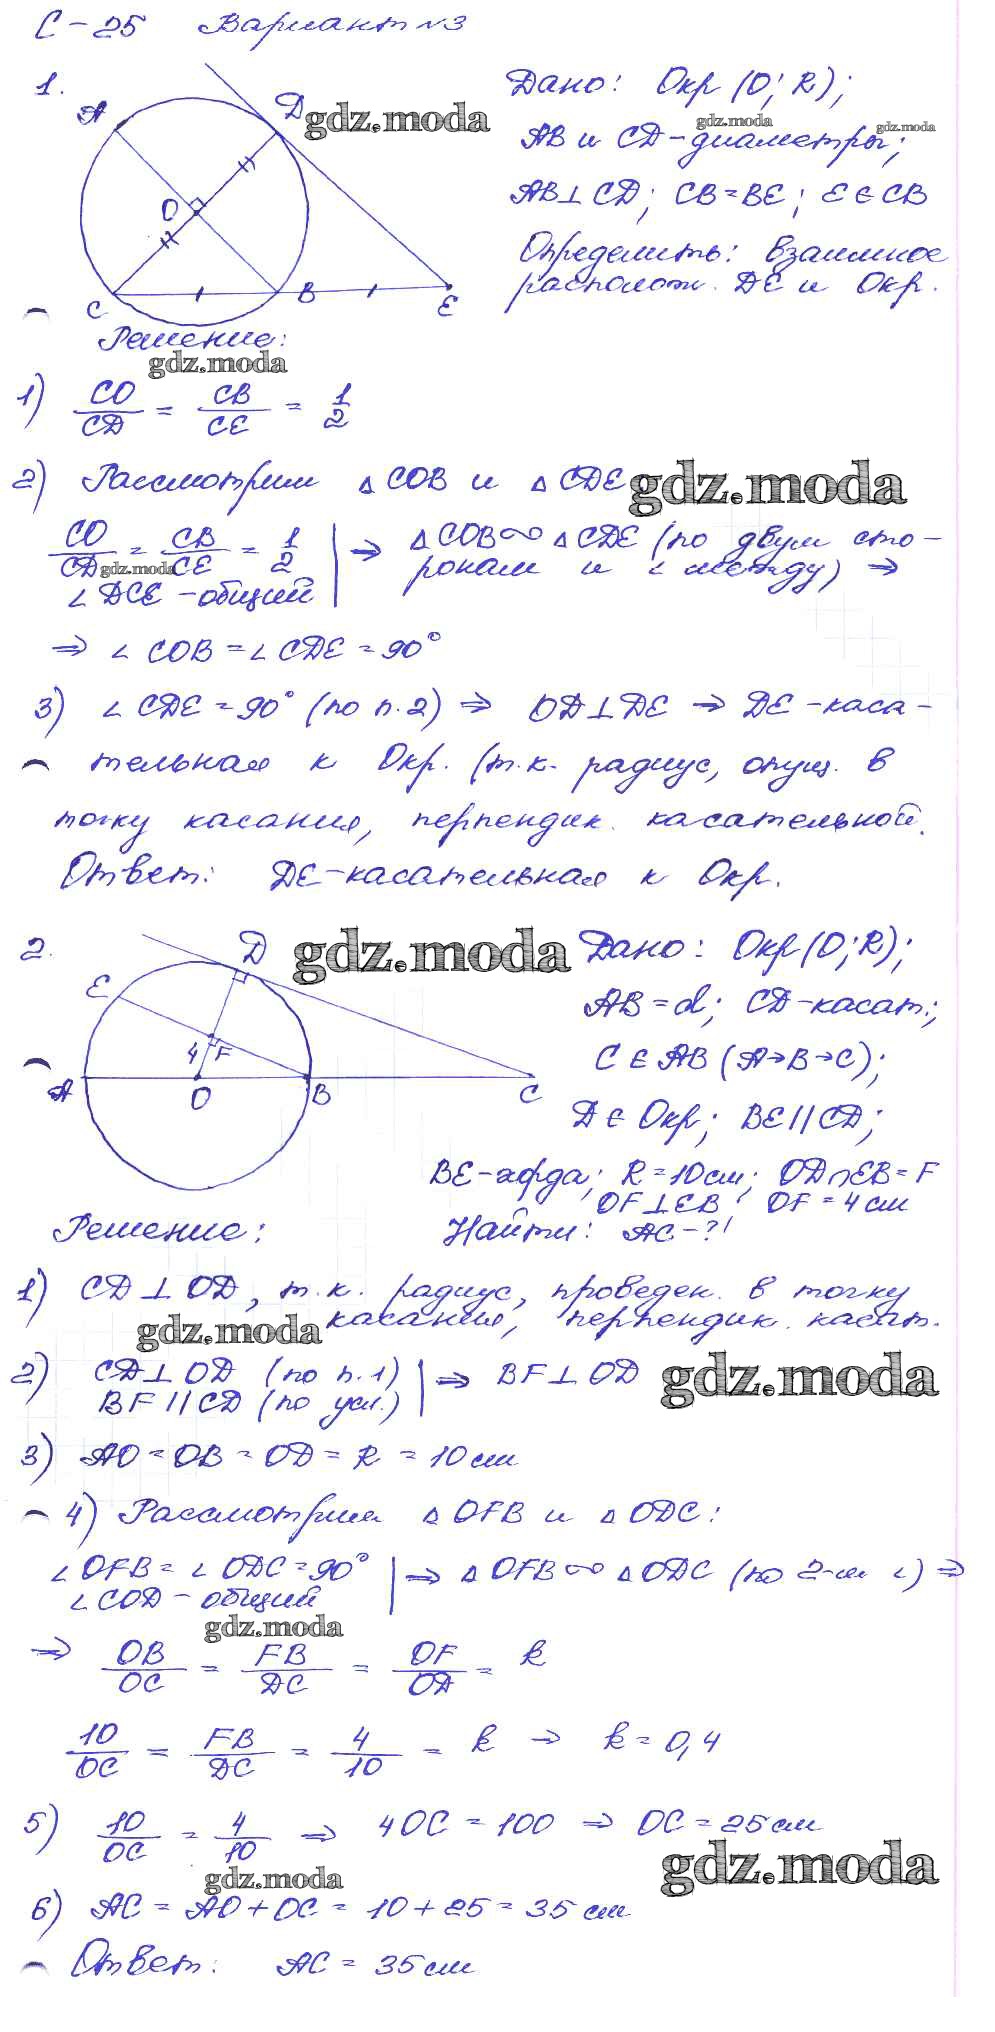 С-25 Вариант №3
1.
A
D
gdz.moda
O
C
B
E
Дано: Окр (O; R);
gdz.moda
gdz.moda
AB и CD-диаметры;
AB⊥CD; CB=BE; E∈CB
Определить: взаимное
располож. DE и Окр.
Решение:
gdz.moda
1) CO/CD = CB/CE = 1/2
2) Рассмотрим △COB и △CDE
gdz.moda
CO/CD = CB/CE = 1/2 | ⇒ △COB∾△CDE (по двум сто-
gdz.moda
∠DCE-общий | ронам и ∠ между) ⇒
⇒ ∠COB=∠CDE=90°
3) ∠CDE=90° (по п.2) ⇒ OD⊥DE ⇒ DE-каса-
тельная к Окр. (т.к. радиус, опущ. в
точку касания, перпендик. касательной.
Ответ: DE-касательная к Окр.
2.
D
gdz.moda
E
4
F
A
O
B
C
Дано: Окр(O;R);
AB=d; CD-касат.;
C∈AB (A→B→C);
D∈Окр; BE//CD;
BE-хорда; R=10см; OD∩EB=F
OF⊥EB; OF=4см
Решение:
Найти: AC-?!
1) CD⊥OD, т.к. радиус, проведен. в точку
gdz.moda
касания, перпендик. касат.
2) CD⊥OD (по п.1) | ⇒ BF⊥OD
BF//CD (по усл.) |
gdz.moda
3) AO=OB=OD=R=10см
4) Рассмотрим △OFB и △ODC:
∠OFB=∠ODC=90° | ⇒ △OFB∾△ODC (по 2-м ∠) ⇒
∠COD-общий |
gdz.moda
⇒ OB/OC = FB/DC = OF/OD = k
10/OC = FB/DC = 4/10 = k ⇒ k=0,4
5) 10/OC = 4/10 ⇒ 4OC=100 ⇒ OC=25см
gdz.moda
gdz.moda
6) AC=AO+OC=10+25=35см
Ответ: AC=35см